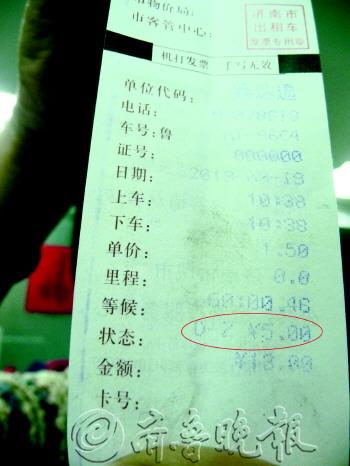 市物价局:
市客管中心:
济南市
出租车
发票专用章
机打发票 手写无效
单位代码:
电话:
车号:鲁
证号: 000000
日期:
上车: 10:38
下车: 10:38
单价: 1.50
里程: 0.0
等候: 00:00.46
状态: 0-2 ¥5.00
金额: ¥13.00
卡号:
齐鲁晚报